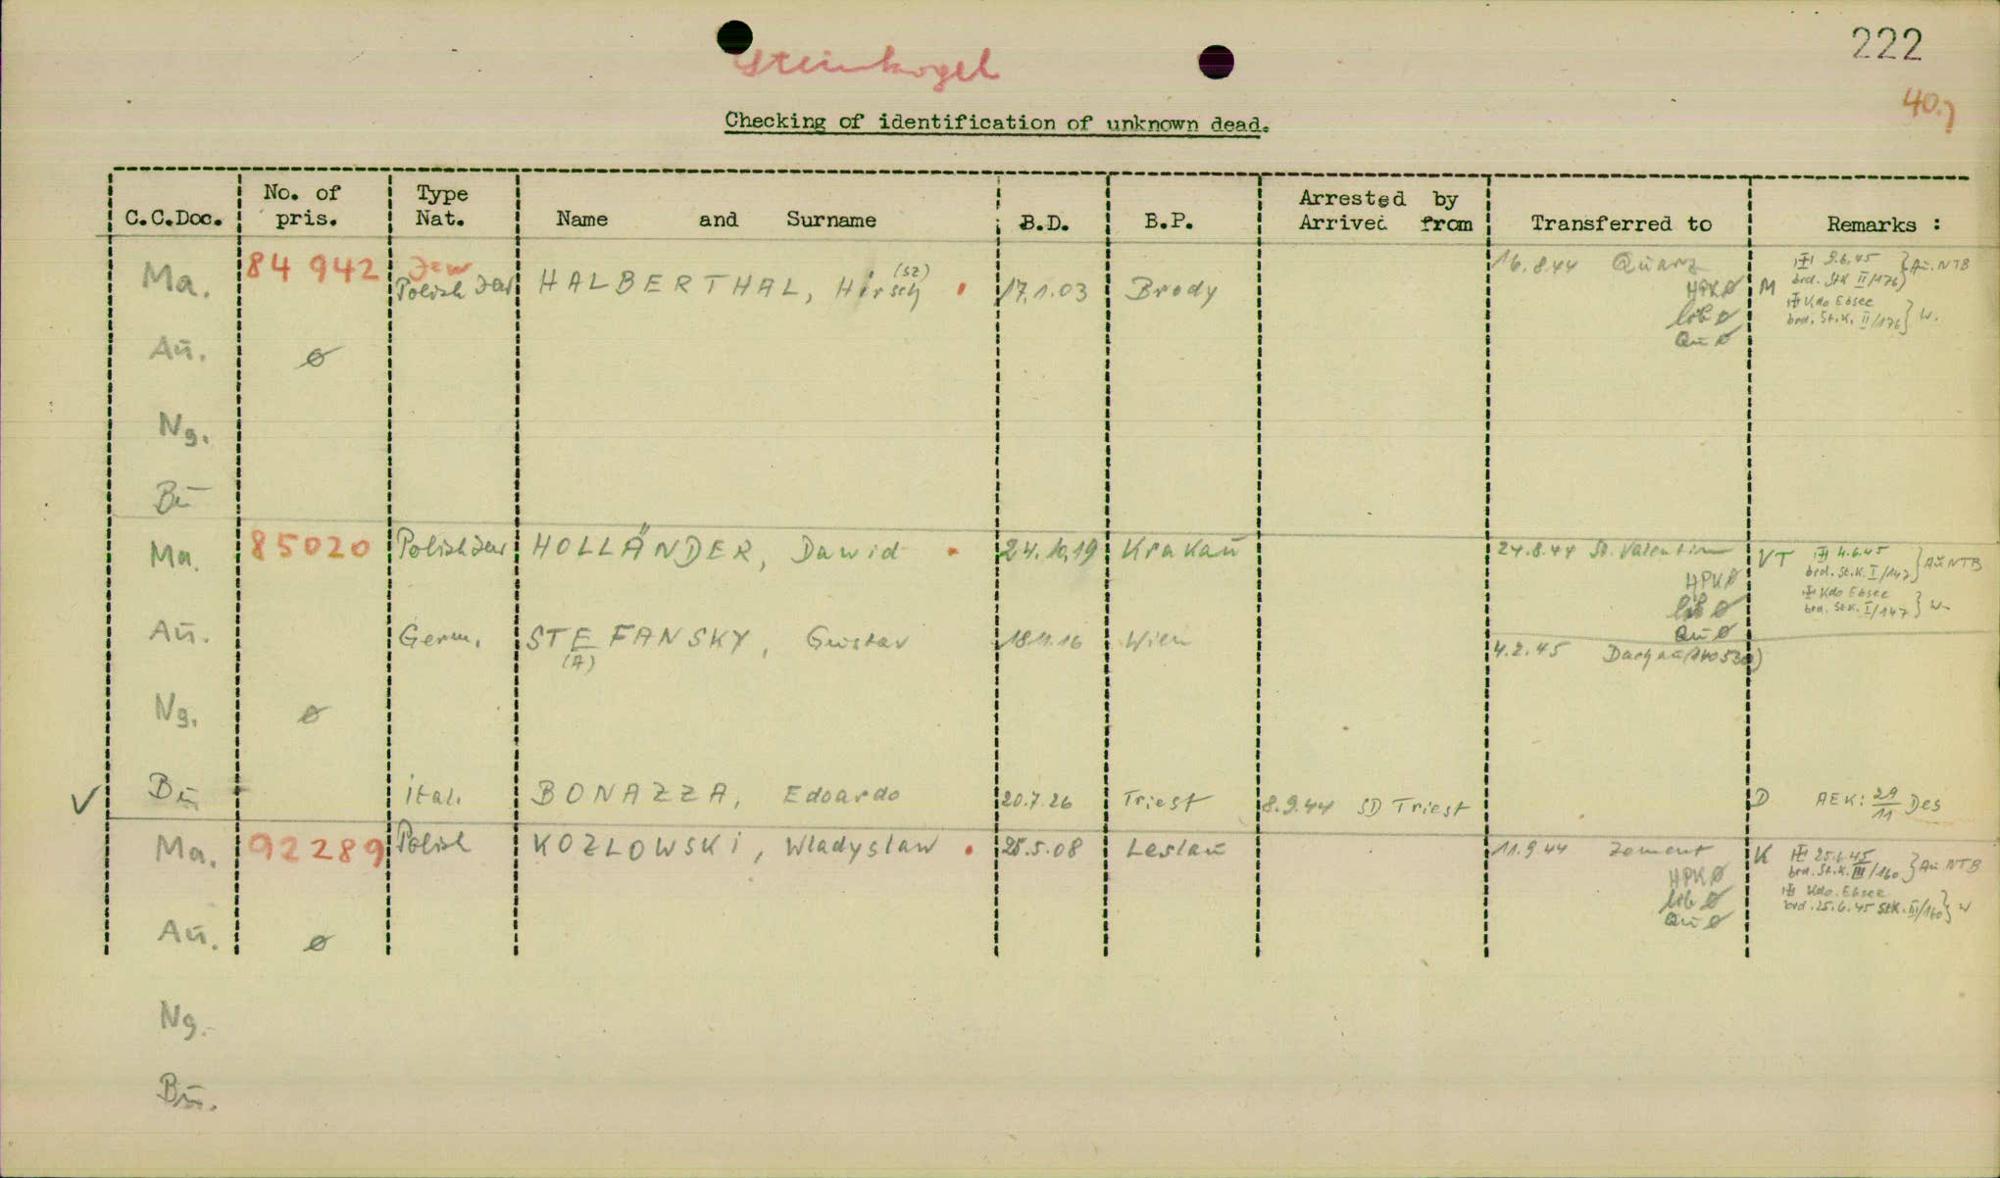 222
Steinkogel
40.)
Checking of identification of unknown dead.
C.C.Doc. No. of pris. Type Nat. Name and Surname B.D. B.P. Arrested by Arrived from Transferred to Remarks :
Ma. 84 942 Jew Polish Jew HALBERTHAL, Hirsch (sz) 17.1.03 Brody 16.8.44 Quarz M 9.6.45 } Aū. NTB
HPKø brd. StK II/176)
lib ø Kdo Ebsee
Qu ø brd. St.K. II/176 } W.
Aū. ø
Ng.
Bū
Ma. 85020 Polish Jew HOLLÄNDER, Dawid 24.10.19 Krakaū 24.8.44 St. Valentin VT 4.6.45 } Aū NTB
HPKø brd. St.K. I/147
lib ø Kdo Ebsee
Qu ø brd. St.K. I/147 } W
Aū. Germ. STEFANSKY, Gustav 18.11.16 Wien 4.2.45
(A)
Ng. ø
✓ Bū ital. BONAZZA, Edoardo 20.7.26 Triest 8.9.44 SD Triest D AEK: 29/11 Des
Ma. 92289 Polish KOZLOWSKi, Wladyslaw 25.5.08 Leslaū 11.9.44 Zement K 25.6.45 } Aū NTB
HPKø brd. St.K. III/160
lib ø Kdo. Ebsee
Qu ø brd. 25.6.45 StK. III/160 } W
Aū. ø
Ng.
Bū.